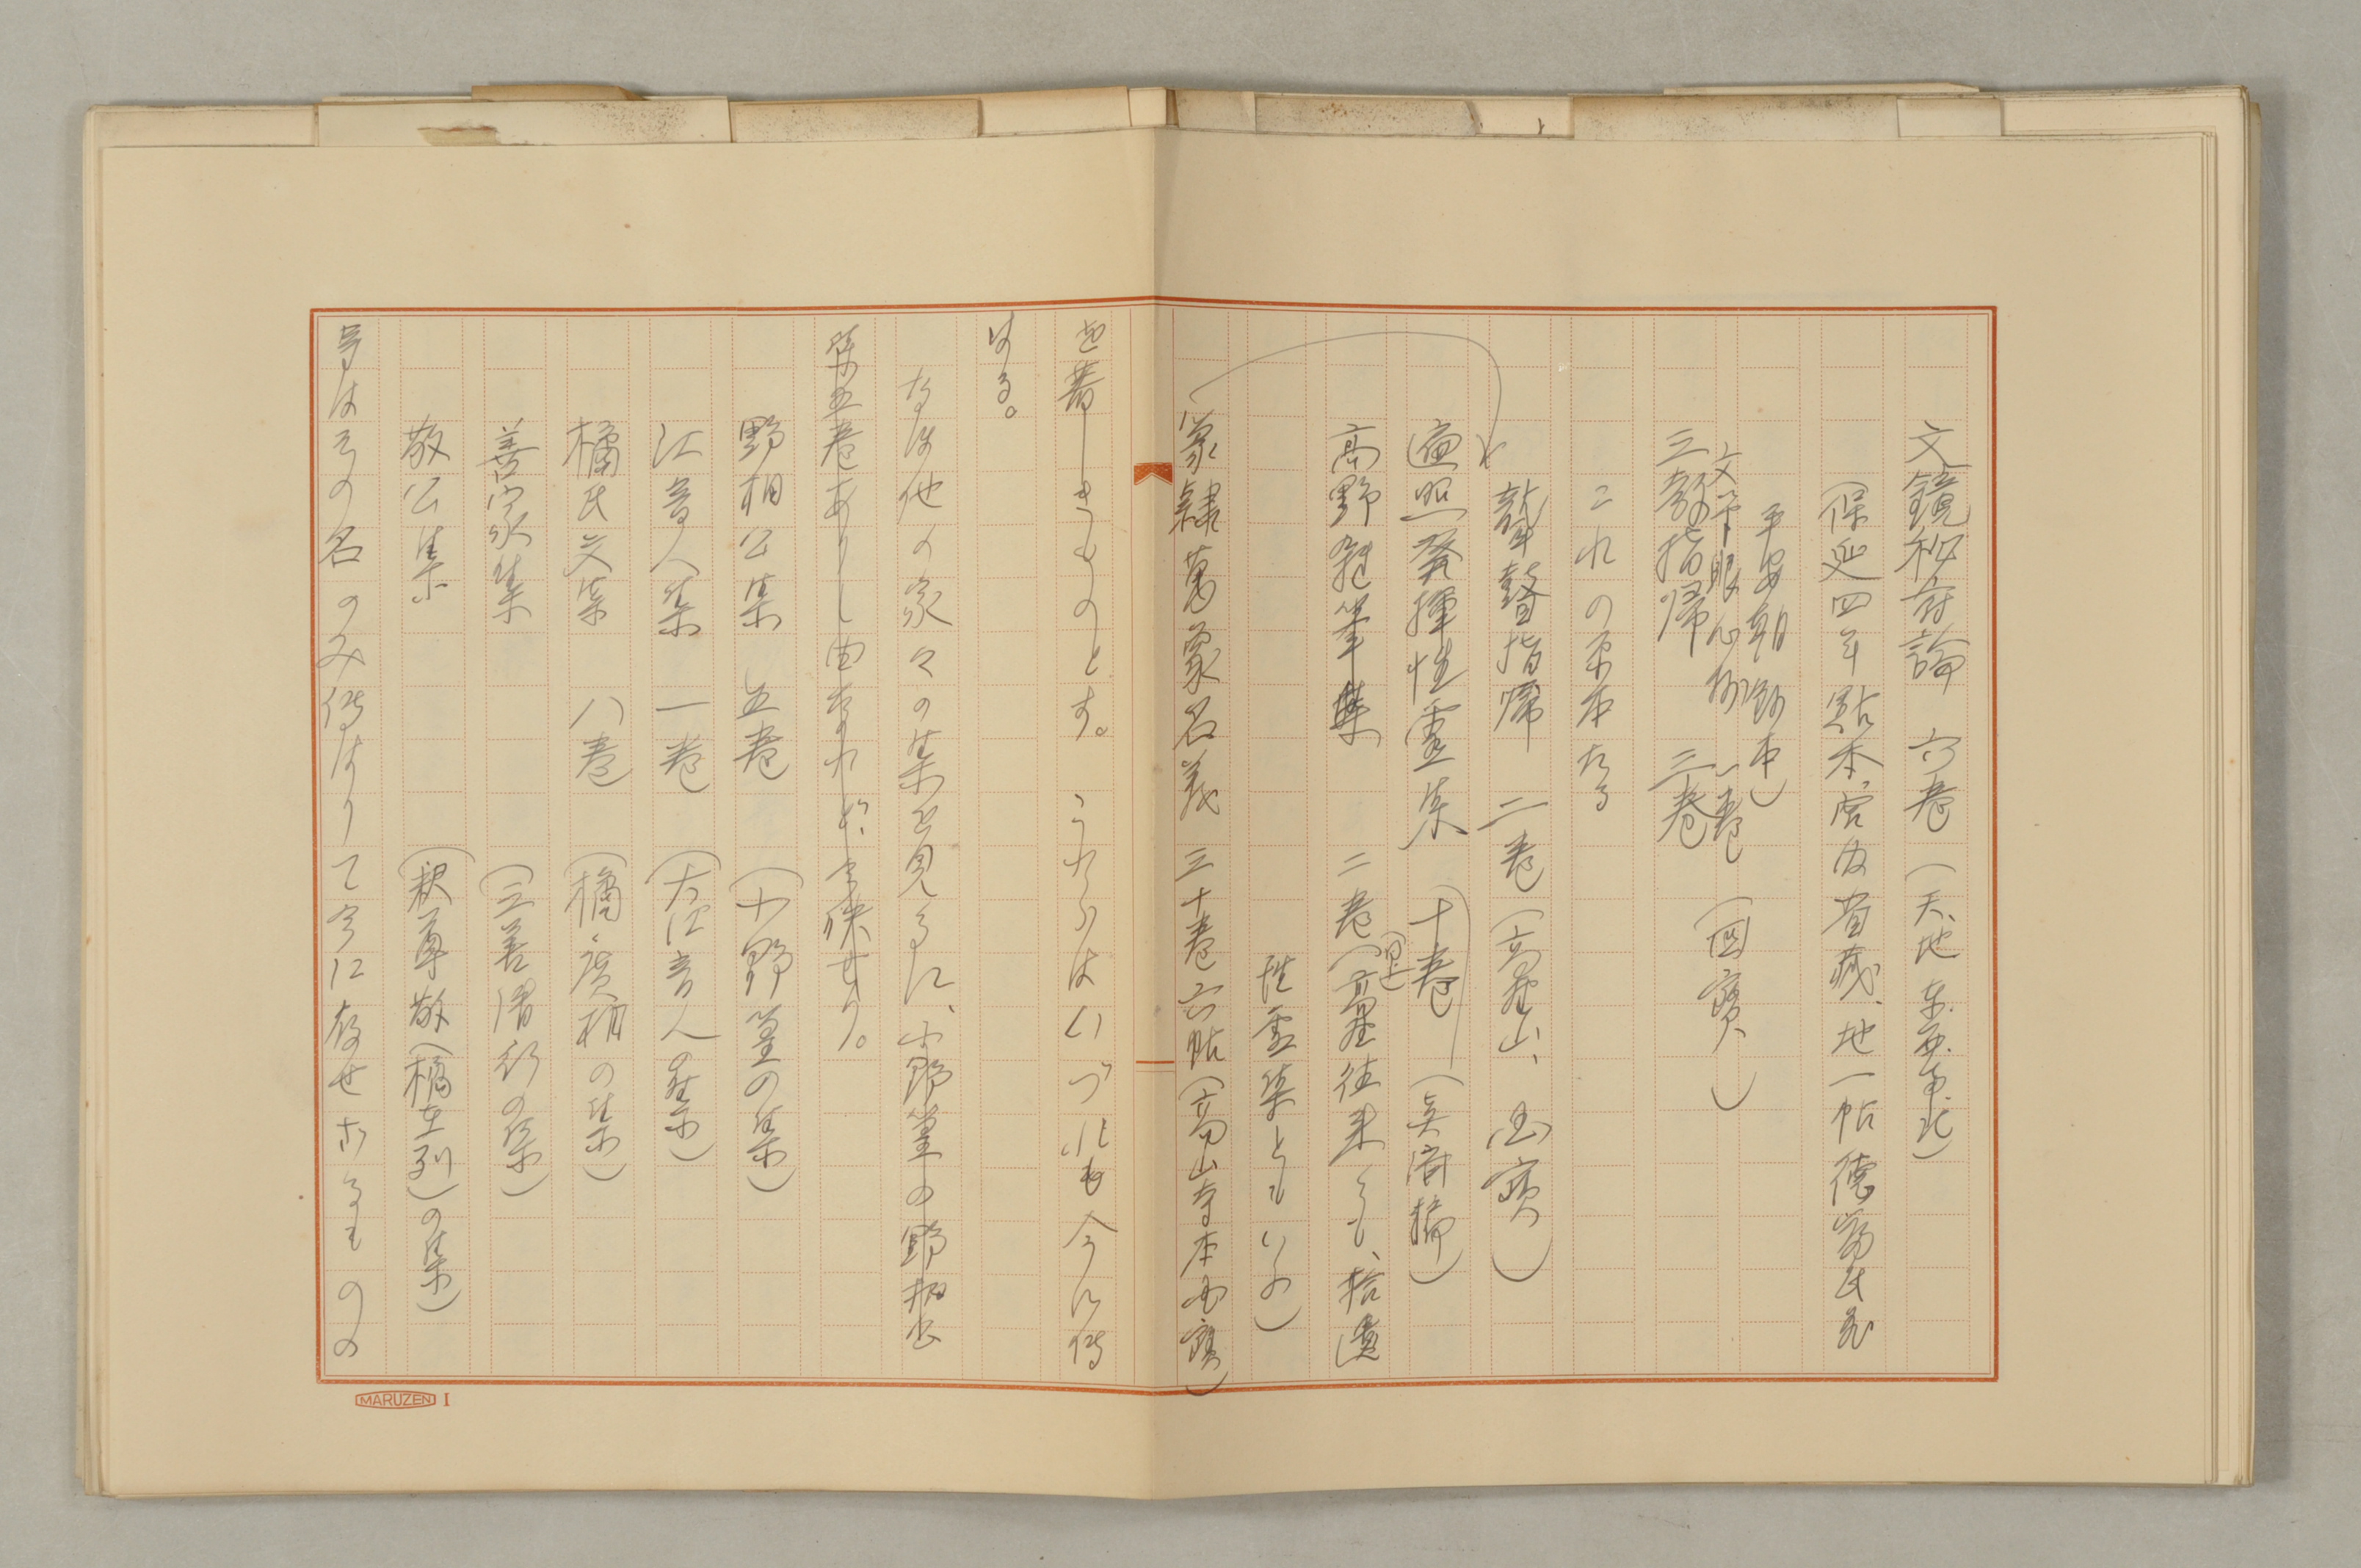 文鏡秘府論　六巻（天、地、東、西、南、北）
（保延四年點本、宮内省蔵、地一帖徳富氏蔵
平安朝鈔本）
文筆眼心抄　一巻
三教指帰　三巻　（国寳）
これの原本たる
聾瞽指帰　二巻（高野山、国寳）
遍照發揮性霊集　十巻（眞済撰）
高野雑筆集　二巻（高野往来とも、拾遺
性霊集ともいふ）
篆隷萬象名義　三十巻六帖（高山寺本国寳）
を著しきものとす。これらはいづれも今に傳
はる。
なほ他の家々の集を見るに、小野篁の野相公
集五巻ありし由なれど、今佚せり。
野相公集　五巻　（小野篁の集）
江音人集　一巻　（大江音人の集）
橘氏文集　八巻　（橘廣相の集）
善家集　（三善清行の集）
敬公集　（釈尊敬（橘在列）の集）
等はその名のみ傳はりて今に存せざるもの
MARUZEN I